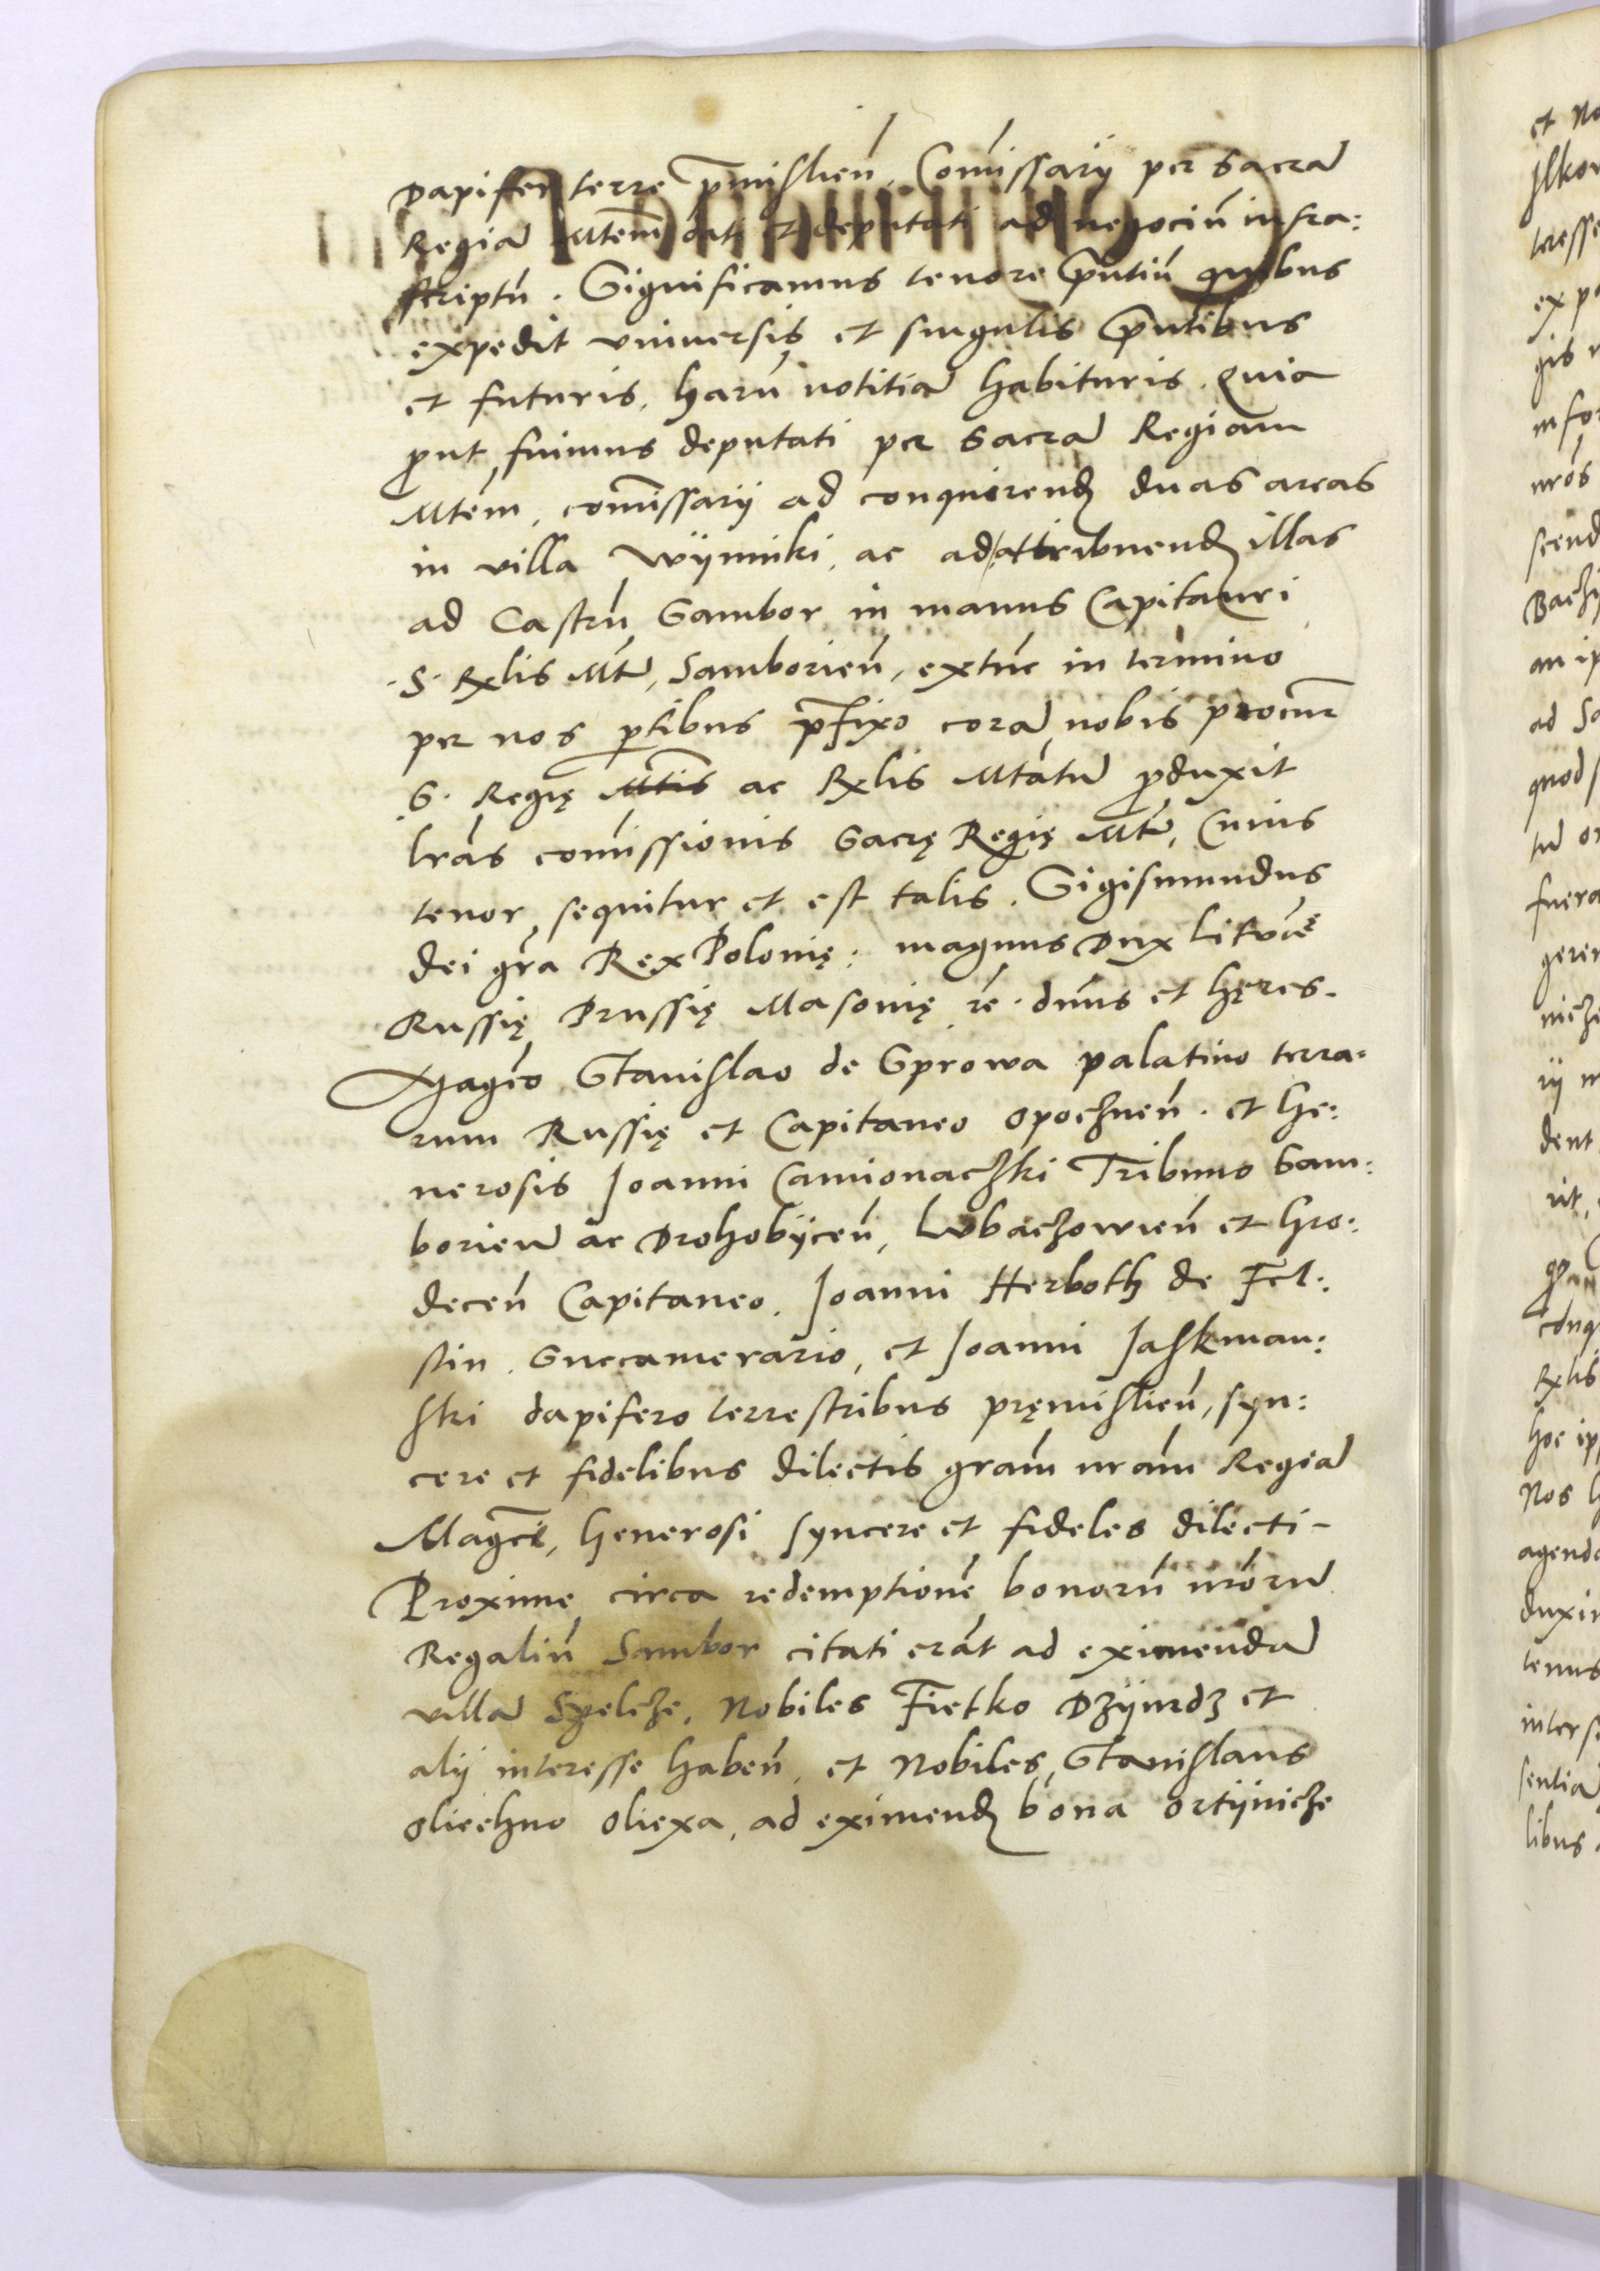 Dapifer terre p̄mislien̄, Com̄issarij per Sacra᷑
Regia᷑ Mtem̄ dati et deputati ad negociū infra:
scriptū. Significamus tenore p̄ntiū quibus
expedit vniuersis et singulis p̄ntibus
et futuris, harū notitia᷑ habituris. Quia
prout fuimus deputati per Sacra᷑ Regiam
Mtem, com̄issarij ad conquirend duas areas
in villa Wÿnniki, ac ad attribuend illas
ad Castrū Sambor in manus Capitanei
S. Rglis Mt᷑, Samborien̄, extūc in termino
per nos partibus p̄fixo cora᷑ nobis procur̄
S. Regię Mtis ac Rglis Mtatu᷑ produxit
lrās com̄issionis Sacrę Regię Mt᷑, Cuius
tenor sequitur et est talis. Sigismundus
dei grā Rex Polonię: magnus Dux Litvāę
Russię Prussię Masouię rc̄. dnūs et hęres.
Magco Stanislao de Sprowa palatino terra:
rum Russię et Capitaneo opocznen̄. et Ge:
nerosis Joanni Camionaczki Tribuno Sam:
borien̄ ac Drohobÿcen̄, Lubaczowien̄ et Gro:
decen̄ Capitaneo. Joanni Herboth de Fel:
stin. Succamerario, et Joanni Jaskman:
ski dapifero terrestribus pręmislien̄, syn:
cere et fidelibus dilectis gram̄ nram̄ Regia᷑
Magcī, Generosi syncere et fideles dilecti-
Proxime circa redemptionē bonorū nrōru᷑
Regaliū Sambor citati erāt ad eximenda᷑
villa᷑ Szelcze, Nobiles Fietko Dzÿurdz et
alij interesse haben̄, et Nobiles Stanislaus
Oliechno Oliexa, ad eximend bona Ortÿnicze